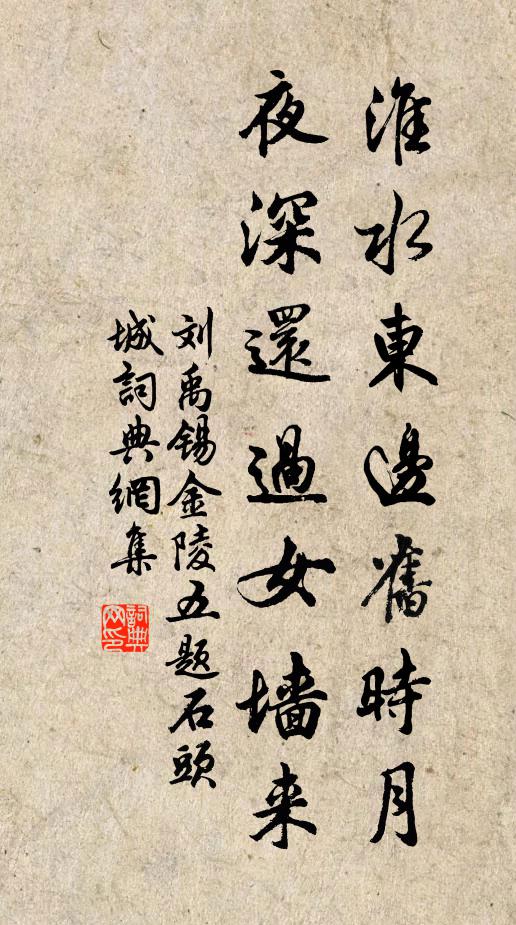 淮水東邊舊時月
夜深還過女墻来
刘禹锡金陵五题石頭
城詞典網集
詞典网印